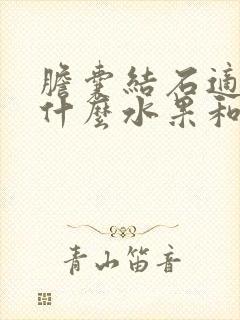 膽囊結石適
什麼水果和
青山笛音